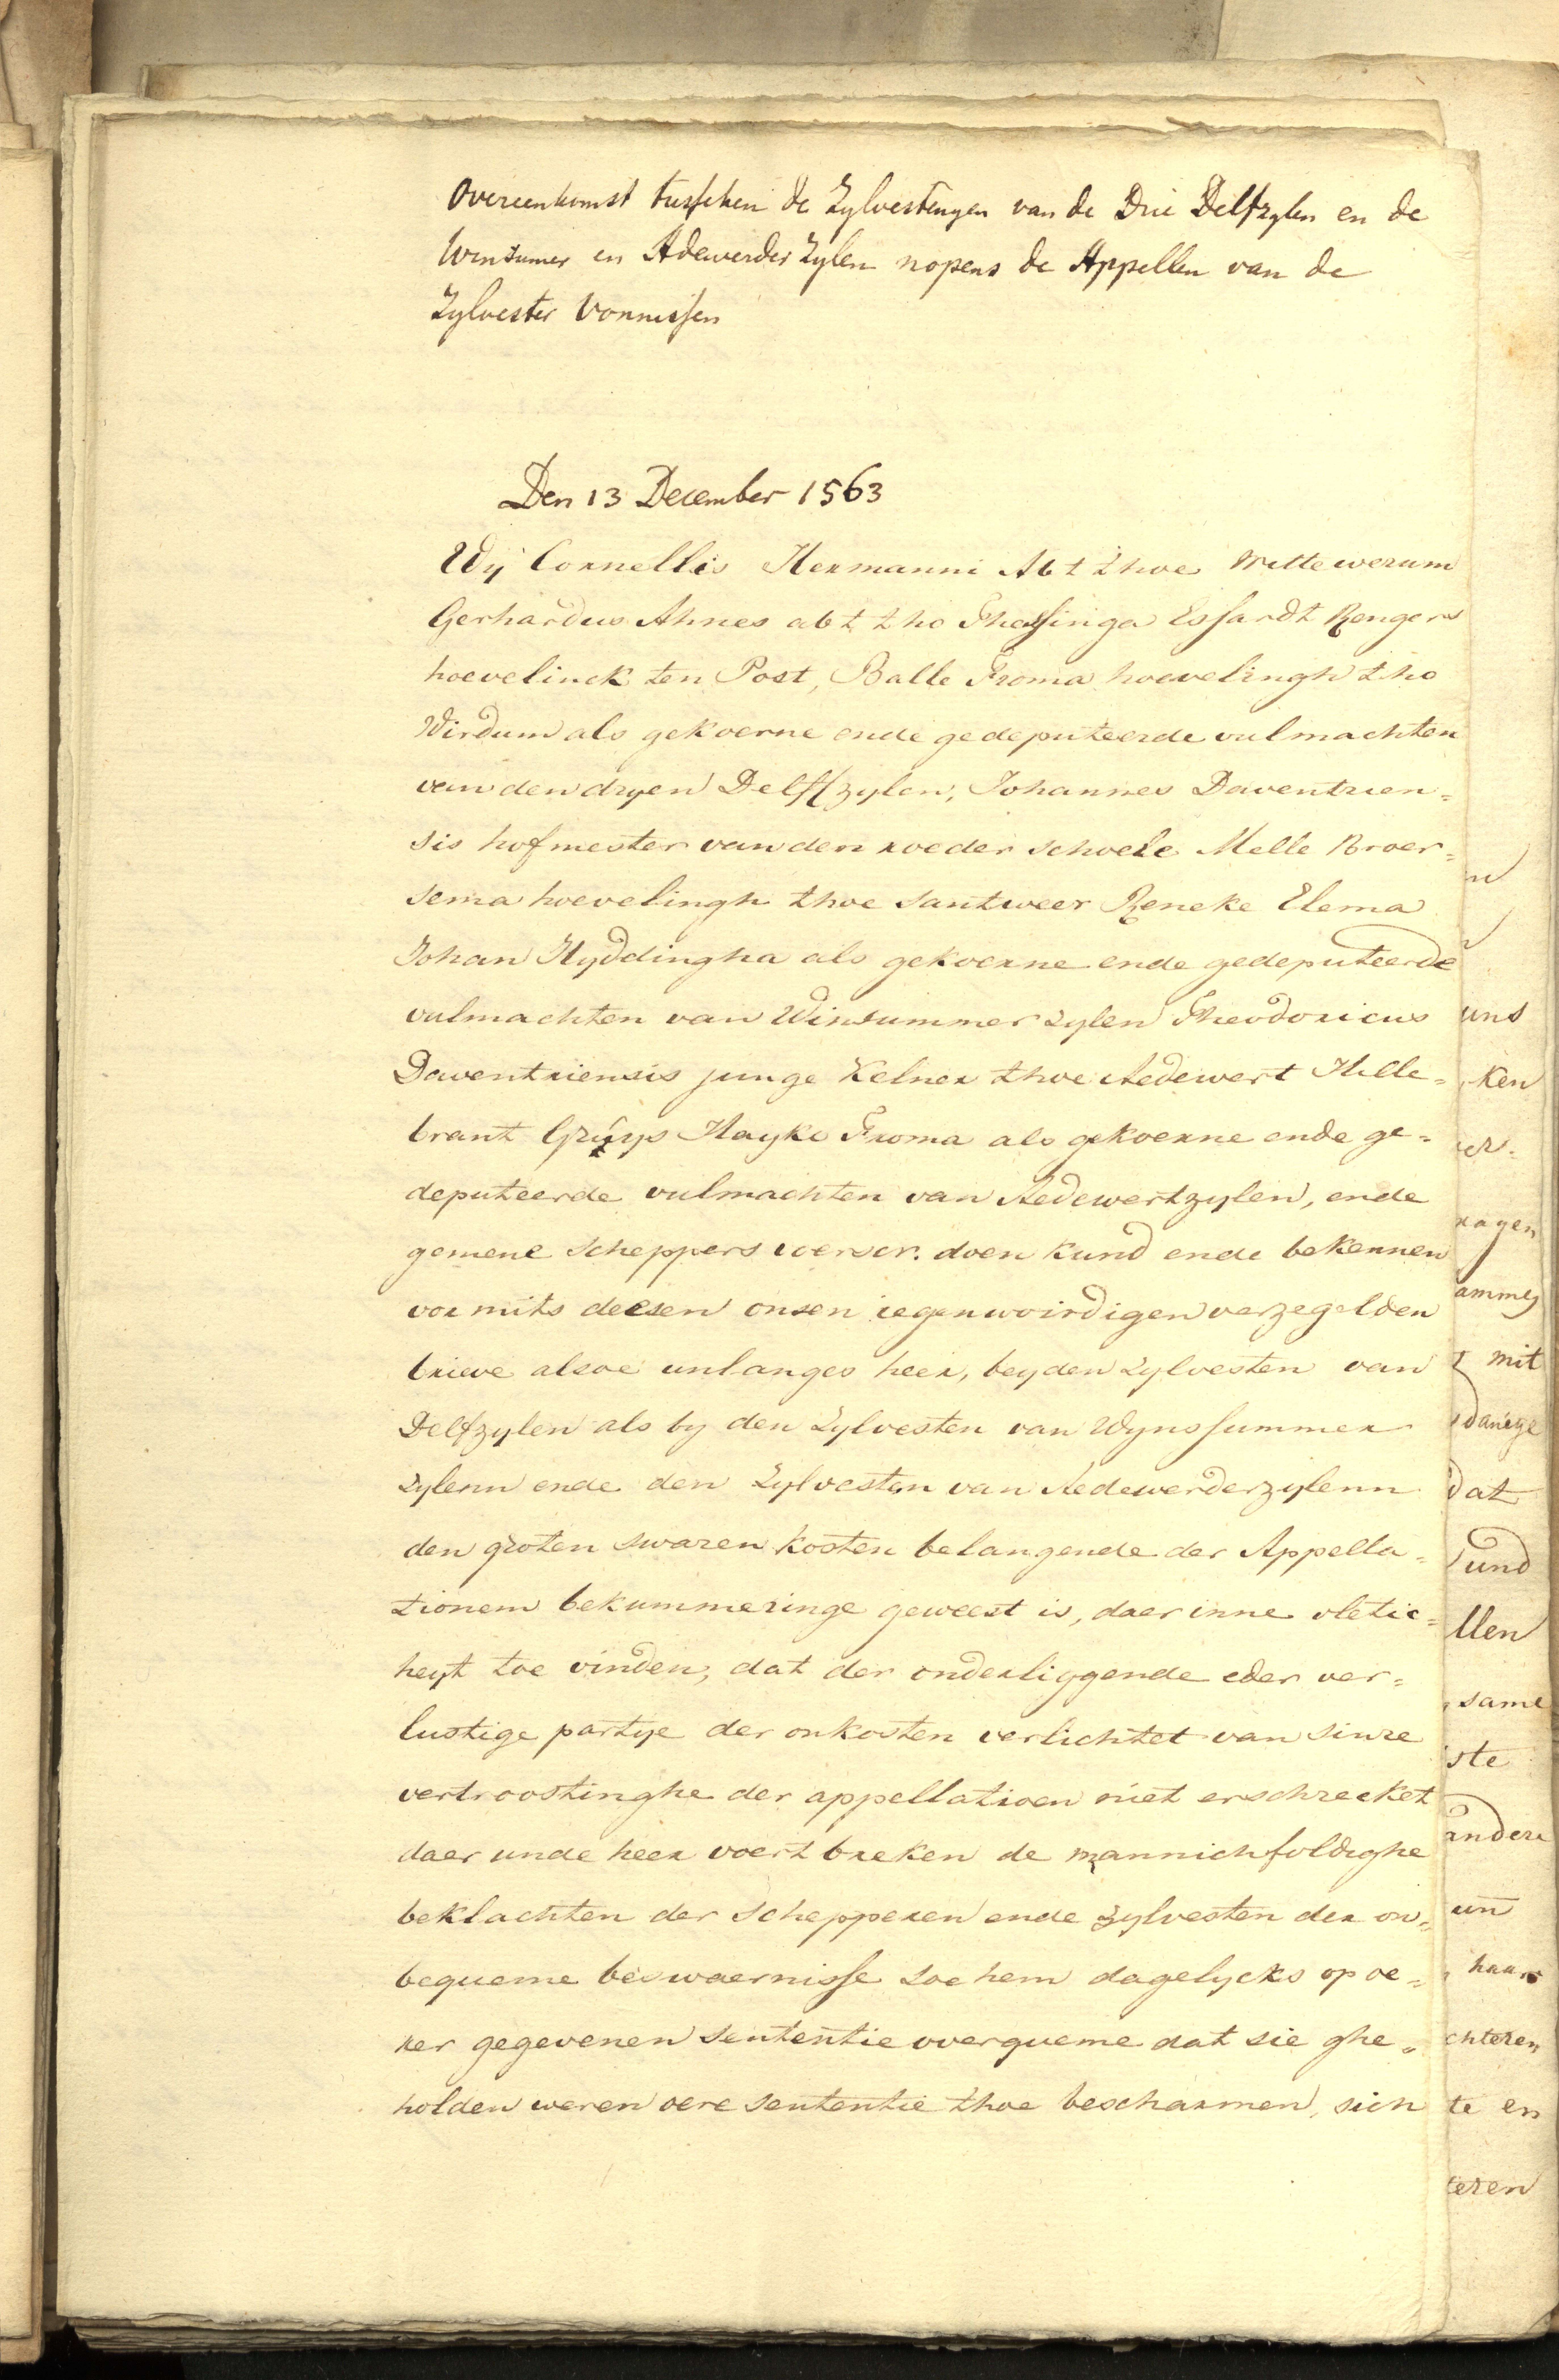 Overeenkomst tusschen de Zylvestengen van de Drie Delfzylen en de
Winsumer en Adewerder Zylen nopens de Appellen van de
Zylvester Vonnissen
Den 13 December 1563
Wij Cornellis Hermanni Abt thoe Wittewerum
Gerhardus Ahnes abt tho Thessinga Essardt Rengers
hoevelinck ten Post, Balle Froma hoevelingh tho
Wirdum als gekoerne ende gedeputeerde vulmachten
van den dryen Delffzylen, Johannes Daventrien=
sis hofmester van den roeder schoele Melle Broer=
sema hoevelingh thoe Santweer Reneke Elema
Johan Hyddingha als gekoerne ende gedeputeerde
vulmachten van Winsummer zylen Theodoricus
Daventriensis junge Kelner thoe Aedewert Hille=
brant Gruys Hayko Froma als gekoerne ende ge=
deputeerde vulmachten van Aedewertzylen, ende
gemene scheppers voerscr. doen kund ende bekennen
vormits deesen onsen iegenwoirdigen verzegelden
brieve alsoe unlanges heer, bey den zylvesten van
Delfzylen als by den Zylvesten van Wynssummer
zylenn ende den Zylvesten van Aedewerderzylenn
den groten swaren kosten belangende der Appella=
tionem bekummeringe geweest is, daer inne vletic=
heyt toe vinden, dat der onderliggende eder ver=
lustige partye der onkosten verlichtet van sinre
vertroostinghe der appellatioen niet erschrecket
daer unde heer voert breken de mannichfoldighe
beklachten der schepperen ende zylvesten der on=
bequeme beswaernisse soe hem dagelycks op oe=
rer gegevenen sententie overqueme dat sie ghe=
holden weren oere sententie thoe bescharmen, sich
uns
ken
er.
ragen
ammes
t mit
danige
dat
und
llen
same
ste
andere
un
haar
chteren
te en
teren